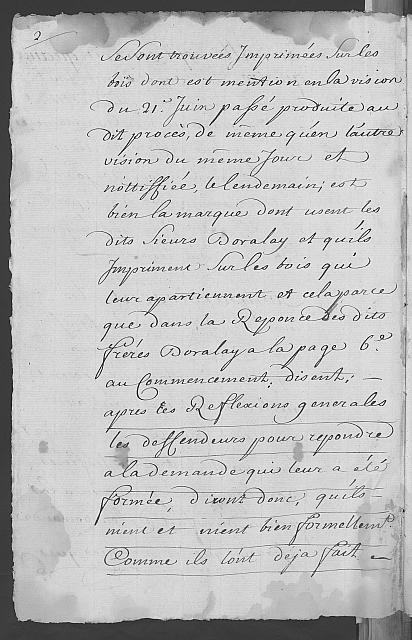 2
Se sont trouvées Imprimées Sur les
bois dont est mention en la vision
du 21.e Juin passé produite au
dit procès, de même qu'en l'autre
vision du même Jour et
nottiffiée, le lendemain; est
bien la marque dont usent les
dits Sieurs Doralay et qu'ils
Impriment Sur les bois qui
leur apartiennent et cela parce
que dans la Reponce des dits
freres Doralay a la page 6.e
au Commencement; disent; —
apres Les Reflexions generales
les deffendeurs pour repondre
a la demande qui leur a été
formée, diront donc, qu'ils
nient et nient bien formellem.t
Comme ils l'ont deja fait —